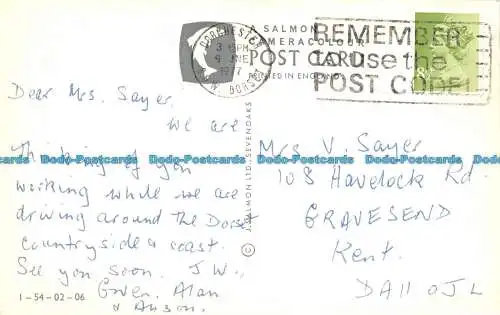 A SALMON
CAMERACOLOUR
POST CARD
PRINTED IN ENGLAND
DORCHESTER
3 15PM
9 JNE
1977
DORSET
REMEMBER
to use the
POST CODE
Dear Mrs. Sayer,
We are
Thinking of you
working while we are
driving around the Dorset
countryside & coast.
See you soon. J.W.,
Gwen, Alan
& Anson.
1-54-02-06
© J. SALMON LTD., SEVENOAKS
Mrs V. Sayer
108 Havelock Rd
GRAVESEND
Kent.
DA11 0JL
Dodo-Postcards Dodo-Postcards Dodo-Postcards Dodo-Postcards